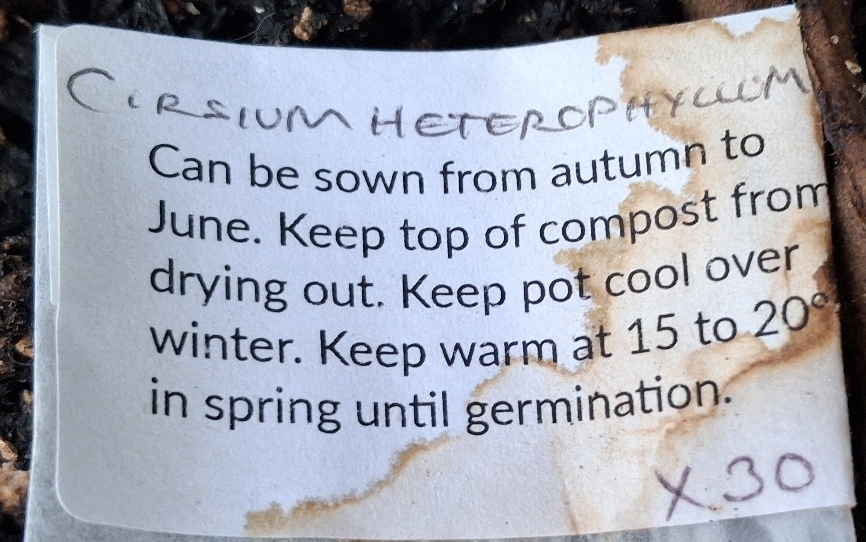 CIRSIUM HETEROPHYLLUM
Can be sown from autumn to
June. Keep top of compost from
drying out. Keep pot cool over
winter. Keep warm at 15 to 20°
in spring until germination.
X 30